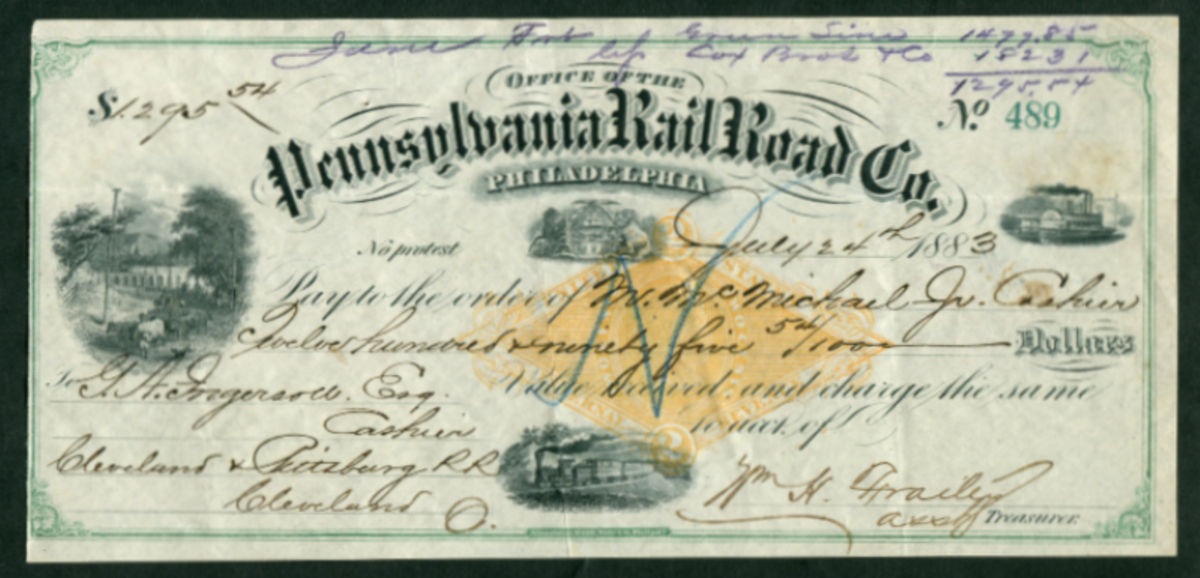 June Frt Green Line 1477.85
by Cox Bros & Co 182 31
1295.54
$1.295 54
OFFICE OF THE
Pennsylvania Rail Road Co.
PHILADELPHIA
No. 489
No protest
July 24th 1883
Pay to the order of W. McMichael Jr. Cashier
Twelve hundred & ninety five 54/100 Dollars
To G. A. Ingersoll. Esq. Value received and charge the same
Cashier to acct. of
Cleveland & Pittsburg R R
Cleveland O.
Wm H. Frailey
asst Treasurer